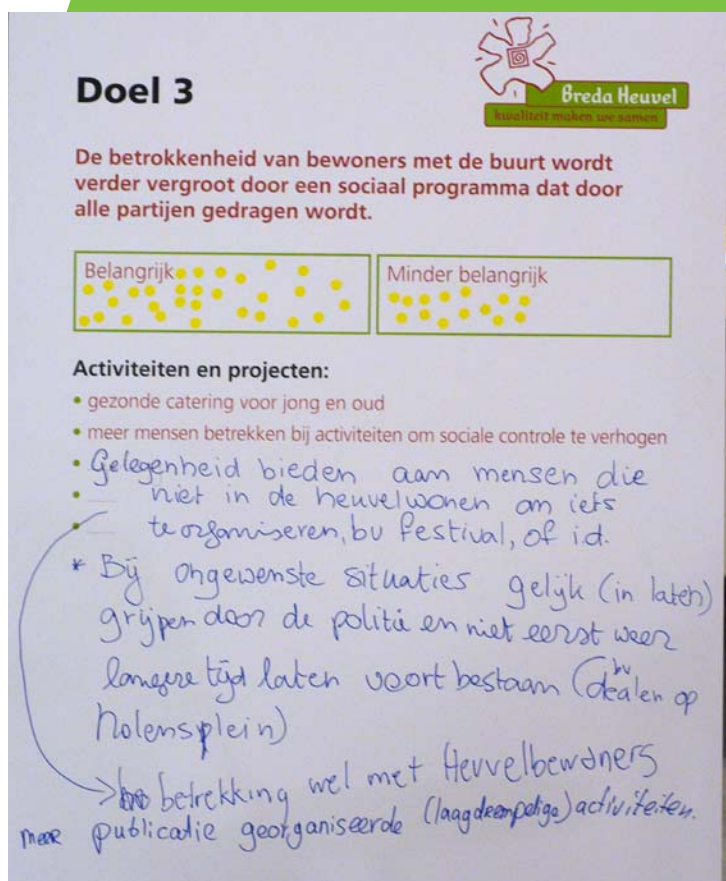 Doel 3
Breda Heuvel
kwaliteit maken we samen
De betrokkenheid van bewoners met de buurt wordt
verder vergroot door een sociaal programma dat door
alle partijen gedragen wordt.
Belangrijk
Minder belangrijk
Activiteiten en projecten:
• gezonde catering voor jong en oud
• meer mensen betrekken bij activiteiten om sociale controle te verhogen
• Gelegenheid bieden aan mensen die
• niet in de heuvel wonen om iets
• te organiseren, bv festival, of i.d.
* Bij ongewenste situaties gelijk (in laten)
grijpen door de politie en niet eerst weer
langere tijd laten voort bestaan (bv dealen op
Nolensplein)
betrekking wel met Heuvelbewoners
meer publicatie georganiseerde (laagdrempelige) activiteiten.